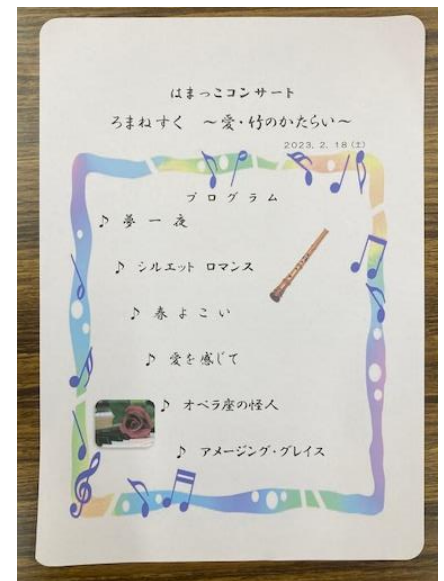 はまっこコンサート
ろまねすく ～愛・竹のかたらい～
2023. 2. 18 (土)
プログラム
♪ 夢一夜
♪ シルエット ロマンス
♪ 春よこい
♪ 愛を感じて
♪ オペラ座の怪人
♪ アメージング・グレイス